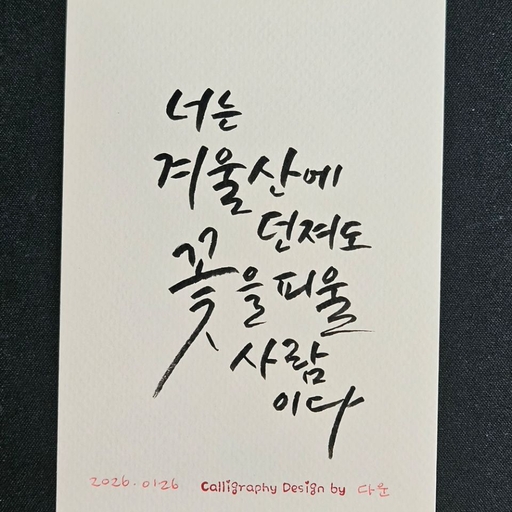 너는
겨울산에
던져도
꽃을 피울
사람
이다
2026.01.26 Calligraphy Design by 다운